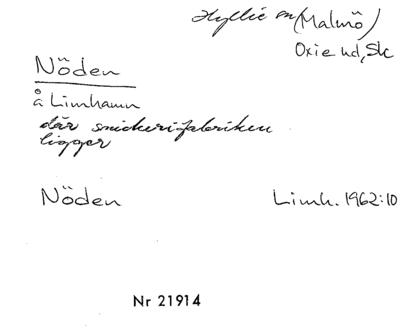 Hyllie sn (Malmö)
Oxie hd, Sk
Nöden
å Limhamn
där snickerifabriken
ligger
Nöden Limh. 1962:10
Nr 21914